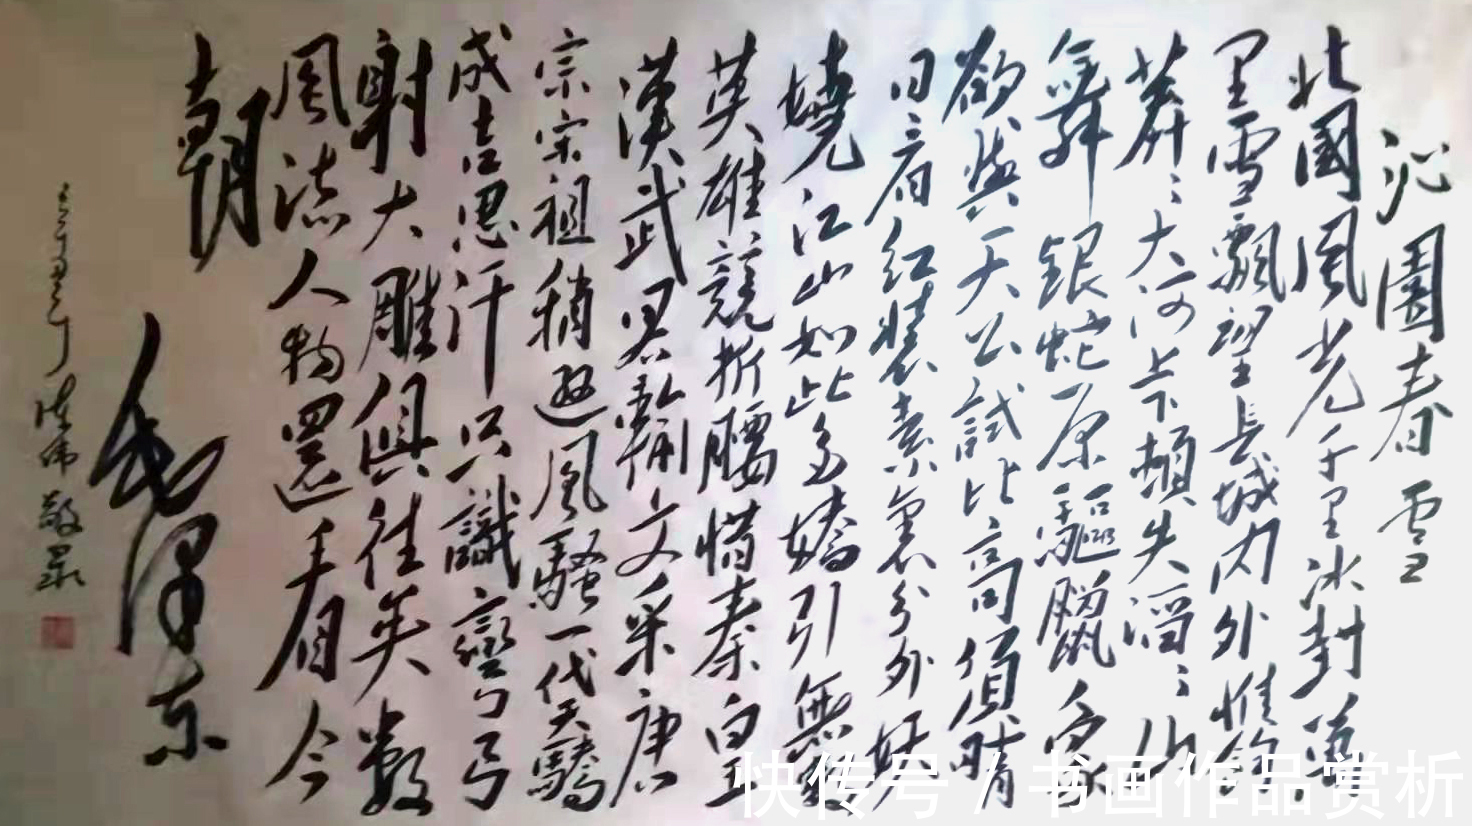 沁園春雪
北國風光千里冰封萬
里雪飄望長城内外惟餘
莽〻大河上下頓失滔〻山
舞銀蛇原驅臘象
欲與天公試比高須晴
日看紅裝素裹分外妖
嬈江山如此多嬌引無數
英雄競折腰惜秦皇
漢武略輸文采唐
宗宋祖稍遜風騷一代天驕
成吉思汗只識彎弓
射大雕俱往矣數
風流人物還看今
朝
毛澤東
偉敬录
快传号 / 书画作品赏析